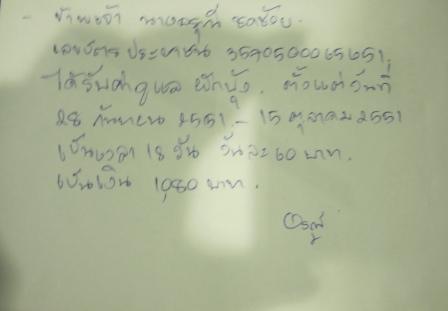 - ข้าพเจ้า นางอรุณี
เลขบัตรประชาชน 3570500065651
ได้รับค่าดูแล ผักบุ้ง. ตั้งแต่วันที่
28 กันยายน 2551 - 15 ตุลาคม 2551
เป็นเวลา 18 วัน วันละ 60 บาท.
เป็นเงิน 1,080 บาท.